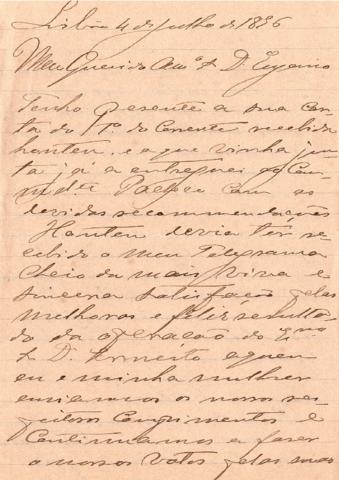 Lisboa 4 de Julho de 1896
Meu Querido Am.º D. Eugenio
Tenho presente a sua car
ta do 1º do Corrente recebida
hontem, e a que vinha jun
ta já a entreguei ao Com
com as
devidas recommendações
Hontem devia ter re
cebido o meu Telegrama
Cheio da mais viva e
sincera satisfação pelas
melhoras e feliz resulta
do da operação do
D. Ernesto a quem
eu e minha mulher
enviamos os nossos res
peitosos Comprimentos e
Continuamos a fazer
os nossos Votos pelas suas